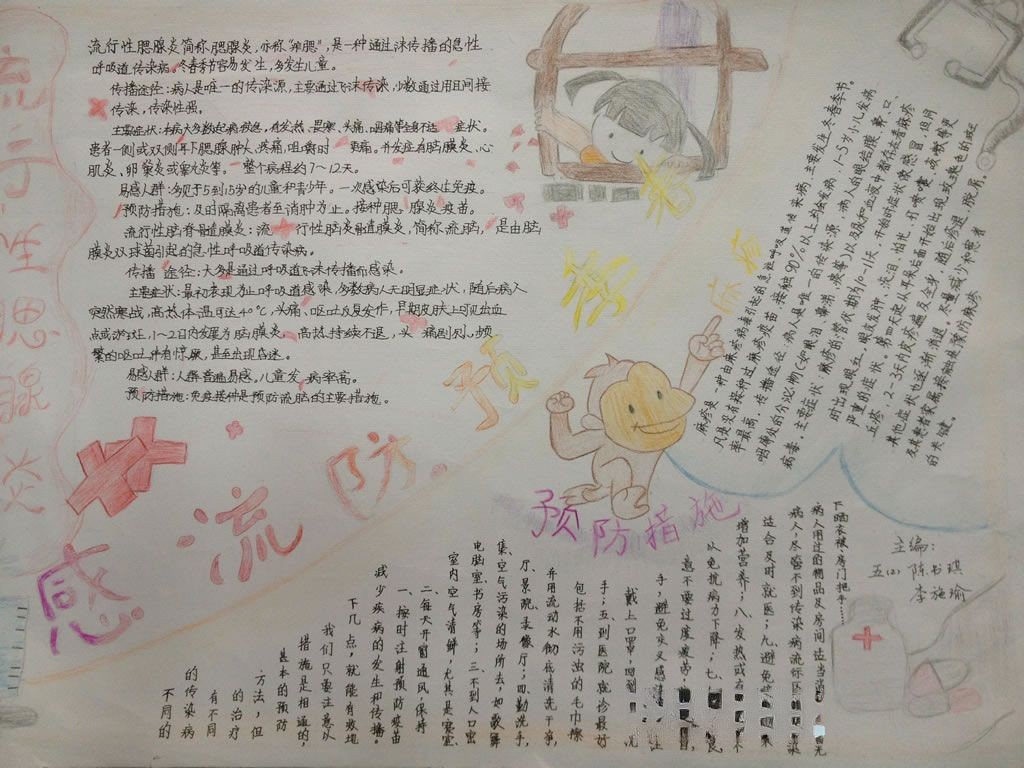 流行性腮腺炎
流行性腮腺炎简称腮腺炎,亦称"痄腮",是一种通过沫传播的急性
呼吸道传染病。冬春季节容易发生,多发生儿童。
传播途径:病人是唯一的传染源,主要通过飞沫传染,少数通过用具间接
传染,传染性强。
主要症状:本病大多数起病较急,有发热、畏寒、头痛、咽痛等全身不适 症状。
患者一侧或双侧耳下腮腺肿大、疼痛,咀嚼时 更痛。并发症有脑膜炎、心
肌炎、卵巢炎或睾丸炎等。整个病程约7~12天。
易感人群:多见于5到15岁的儿童和青少年。一次感染后可获终生免疫。
预防措施:及时隔离患者至消肿为止。接种腮 腺炎疫苗。
流行性脑脊髓膜炎:流 行性脑炎脊髓膜炎,简称流脑, 是由脑
膜炎双球菌引起的急性呼吸道传染病。
传播 途径:大多是通过呼吸道飞沫传播而感染。
主要症状:最初表现为上呼吸道感染,多数病人无明显症状,随后病人
突然寒战,高热,体温可达40℃,头痛、呕吐反复发作,早期皮肤上可见出血
点或淤斑,1~2日内发展为脑膜炎。高热持续不退,头 痛剧烈,频
繁的呕吐,伴有惊厥,甚至出现昏迷。
易感人群:人群普遍易感。儿童发 病率高。
预防措施:免疫接种是预防流脑的主要措施。
春
季
预
防
流
感
麻疹
麻疹是一种由麻疹病毒引起的急性呼吸道传染病,主要发生冬春季节。
凡是没有接种过麻疹疫苗接触90%以上均会发病,1-5岁小儿发病
率最高。传播途径:病人是唯一的传染源,病人的眼结膜、鼻、口、
咽等处的分泌物(如眼泪、鼻涕、痰等)以及尿和血液中都存在着麻疹
病毒。主要症状:麻疹的潜伏期为10-11天,开始时症状像感冒,但同
时出现眼红、眼皮发肿、流泪、怕光、打喷嚏、咳嗽等更
严重的症状。第四天起从耳朵后面开始出现玫瑰色的斑
丘疹,2-3天内皮疹遍及全身,随后疹退、脱屑。
其他症状也逐渐消退。尽量减少和患者
及其患者家属接触是预防麻疹
的关键。
预防措施
不同的
的传染病
有不同
的治疗
方法,但
基本的预防
措施是相通的,
我们只要注意以
下几点,就能有效地
减少疾病的发生和传播。
一、按时注射预防疫苗
二、每天开窗通风,保持
室内空气清鲜,尤其是寝室、
电脑室、书房等;三、不到人口密
集、空气污染的场所去,如歌舞
厅、影院、录像厅;四、勤洗手,
并用流动水彻底清洗干净,
包括不用污浊的毛巾擦
手;五、到医院就诊最好
戴上口罩,回 洗
手,避免交叉感 注
意不要过度疲劳,
以免抗病力下降;七、 良
增加营养;八、发热或 不
适合及时就医;九、避免 来
病人,尽量不到传染病流 染
病人用过的物品及房间适当 无
下晒衣被、房门把手……
主编:
五(1) 陈书琪
李施瑜